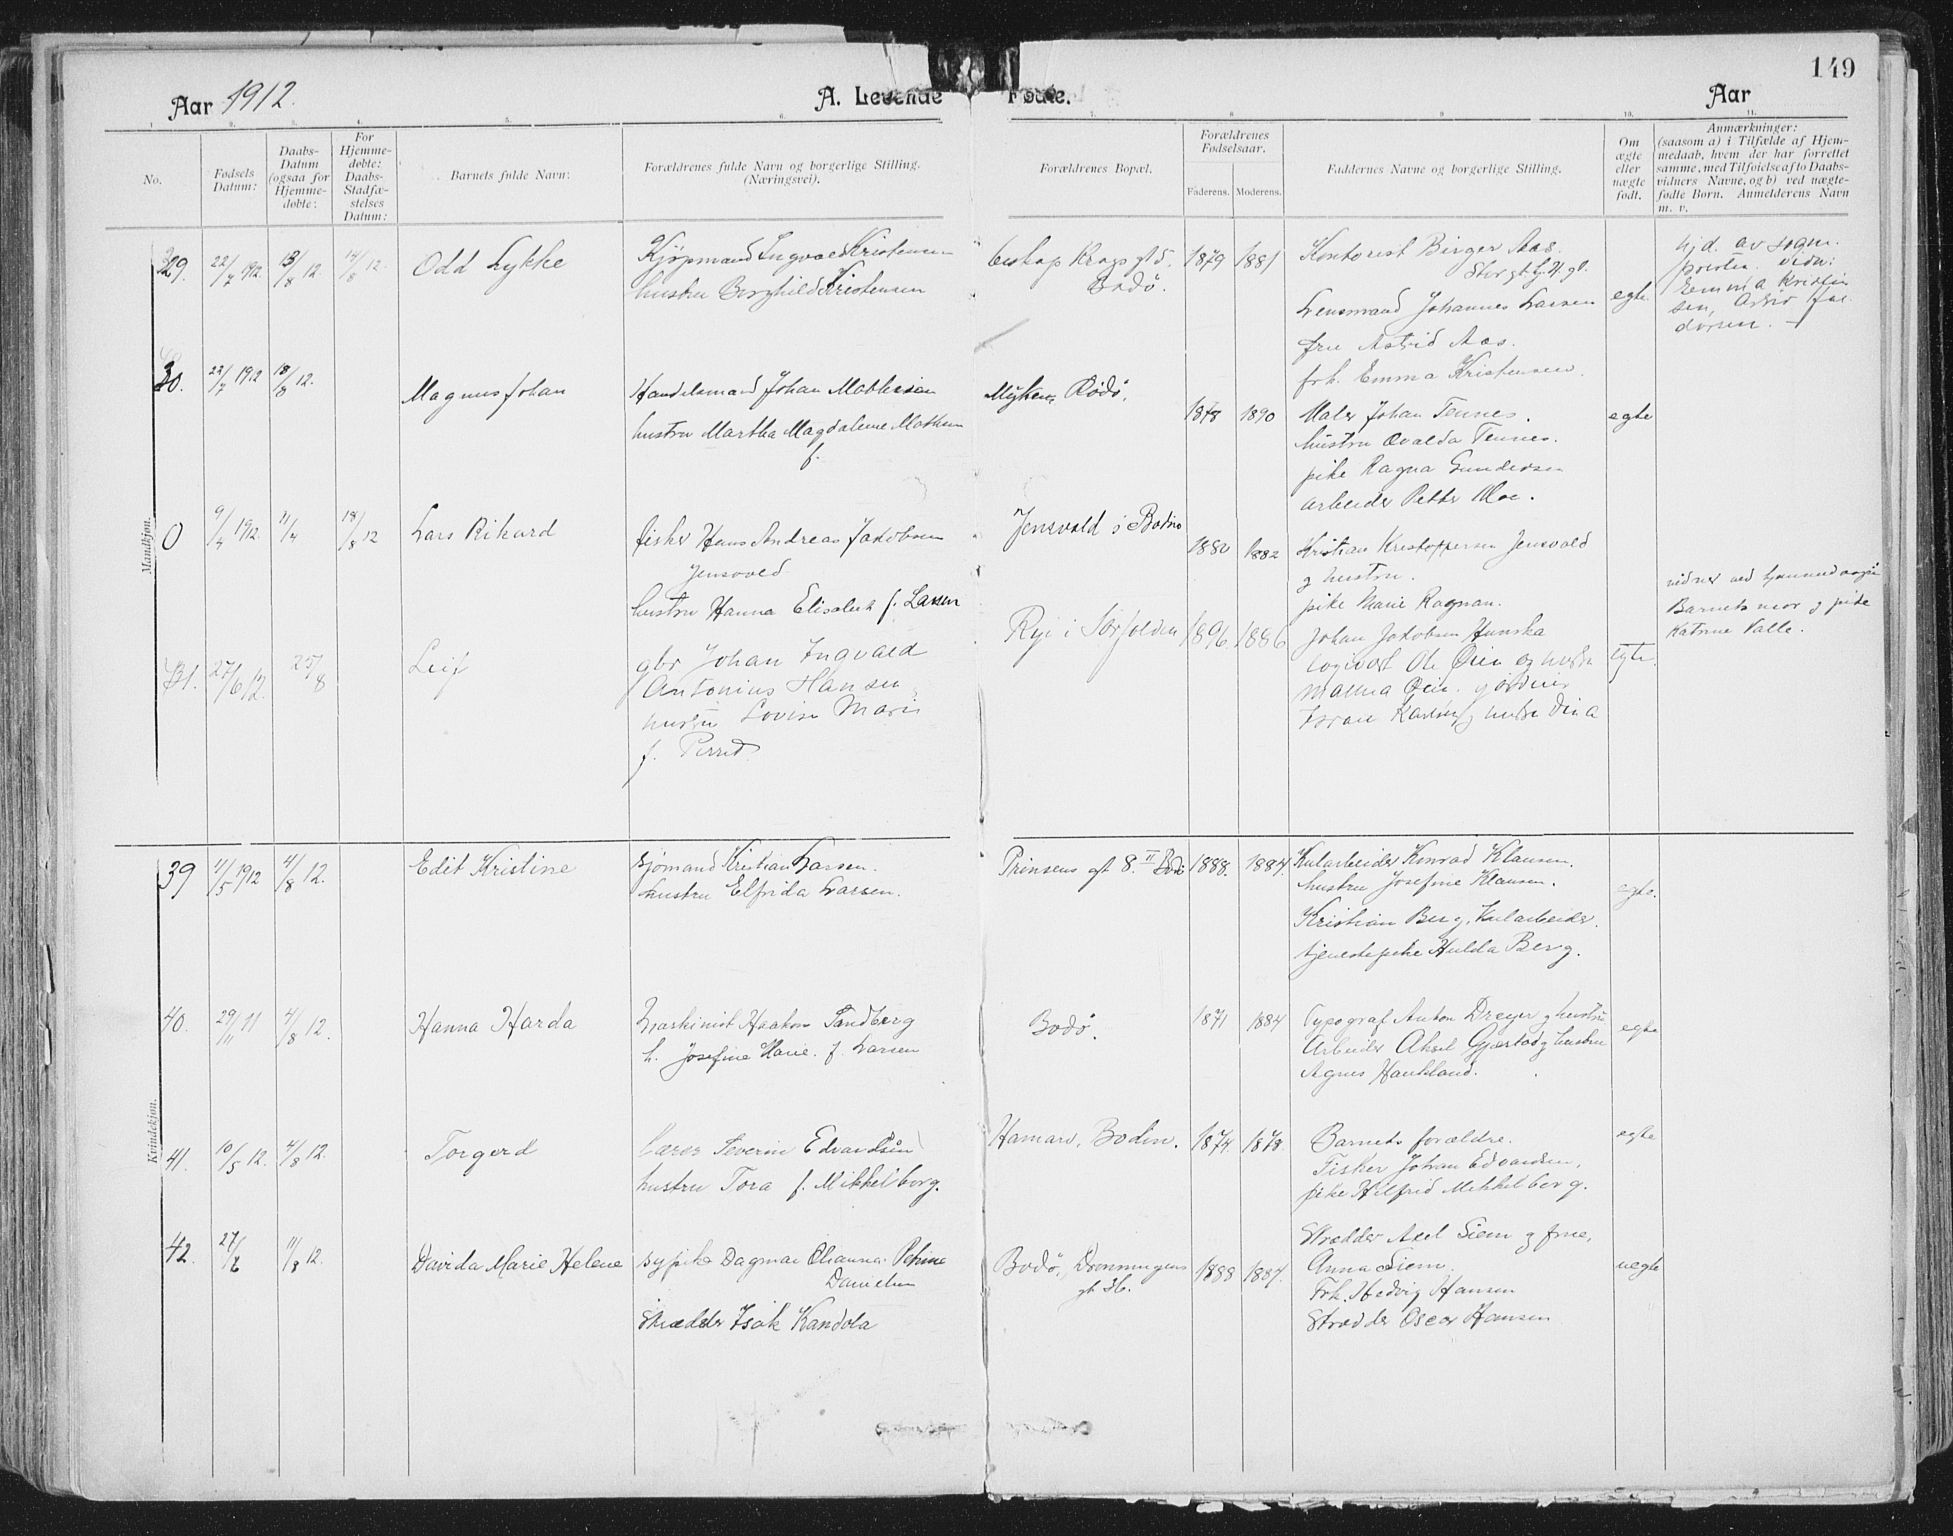 149
Aar 1912.
A. Levende Fødte.
Aar
1. 2. 3. 4. 5. 6. 7. 8. 9. 10. 11.
No.
Fødsels
Datum:
Daabs-
Datum
(ogsaa for
Hjemme-
døbte:
For
Hjemme-
døbte:
Daabs-
Stadfæ-
stelses
Datum:
Barnets fulde Navn:
Forældrenes fulde Navn og borgerlige Stilling.
(Næringsvei).
Forældrenes Bopæl.
Forældrenes
Fødselsaar.
Faderens. Moderens.
Faddernes Navne og borgerlige Stilling.
Om
ægte
eller
uægte
født.
Anmærkninger:
(saasom a) i Tilfælde af Hjem-
medaab, hvem der har forrettet
samme, med Tilføielse af to Daabs-
vidners Navne, og b) ved uægte-
fødte Børn. Anmelderens Navn
m. v.
Mandkjøn.
29. 22/7 1912 13/8 12 14/8 12.
Odd Lykke
Kjøpmand Ingvald Kristensen
hustru Borghild Kristensen
biskop Krogs gt 5.
Bodø.
1879 1881
Kontorist Birger Aas.
Lensmand Johannes Larsen
fru Astrid Aas.
frk. Emma Kristensen.
egte.
hjd. av sogne-
presten. Vidn:
Emma Kristen
sen,
30. 22/7 1912 18/8 12.
Magnus Johan
Handelsmand Johan Mathisen
hustru Martha Magdalene
f.
Myken, Rødø.
1878 1890
Maler Johan Tennes.
hustru Ovalda Tennes.
pike Ragna Gundersen
arbeider Petter Moe.
egte
0 9/4 1912 11/4 18/8 12
Lars Rikard
fisker Hans Andreas Jakobsen
Jensvold
hustru Hanna Elisabet f. Larsen
Jensvold i Bodin
1880 1882
Kristian Kristoffersen Jensvold
g hustru.
pike Marie Rognan.
Johan Jakobsen Hunska
Barnets mor g pike
Katrine Valle.
31. 27/6 12. 25/8
Leif
gbr Johan Ingvald
Antonius Hansen
hustru Lovise Marie
f.
Ryi i Sørfolden
1896 1886
Ole Øien og hustru
Øien.
hustru Dina
egte.
Kvindekjøn.
39 11/5 1912 4/8 12.
Edit Kristine
sjømand Kristian Larsen.
hustru Elfrida Larsen.
Prinsens gt 8. II Bodø
1888. 1884.
Kularbeider Konrad Klausen.
hustru Josefine Klausen.
Kristian Berg, Kularbeider.
tjenestepike Hulda Berg.
egte.
40. 29/11 11 4/8 12.
Hanna Harda
Maskinist Haakon Sandberg
h. Josefine Marie. f. Larsen
Bodø.
1871 1884
Typograf Anton Dreyer g hustru
Arbeider Aksel g hustru
Agnes Haukland.
egte
41. 10/5 12. 4/8 12.
Torgerd
Lærer Severin Edvardsen
hustru Tora f. Mikkelborg.
Hamarø, Bodin.
1874. 1878.
Barnets forældre.
Fisker Johan Edvardsen,
pike Hilfrid Mikkelborg.
egte
42. 27/6 11/8 12.
Davida Marie Helene
sypike Dagmar Petrine
Danielsen
Skrædder Isak Kandola
Bodø, Dronningens
gt 36.
1888 1887.
Skrædder Axel Siem g frue,
Anna Siem.
Frk. Hedvig Hansen
Skrædder Oscar Hansen
uegte